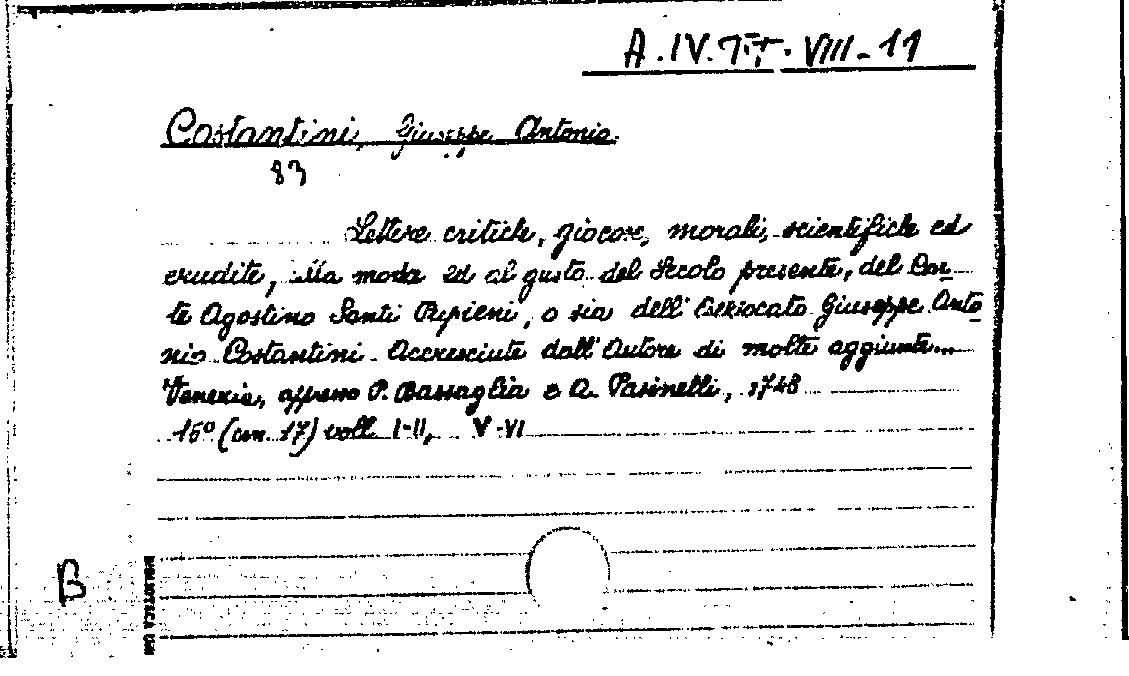 A.IV.TT.VIII-11
Costantini, Giuseppe Antonio.
83
Lettere critiche, giocose, morali, scientifiche ed
erudite, alla moda ed al gusto del Secolo presente, del Con-
te Agostino Santi Pupieni, o sia dell'Avvocato Giuseppe Anto
nio Costantini. Accresciute dall'Autore di molte aggiunte...
Venezia, appresso P. Bassaglia e A. Pasinelli, 1748
16° (cm. 17) voll. I-II, V-VI
B
BIBLIOTECA